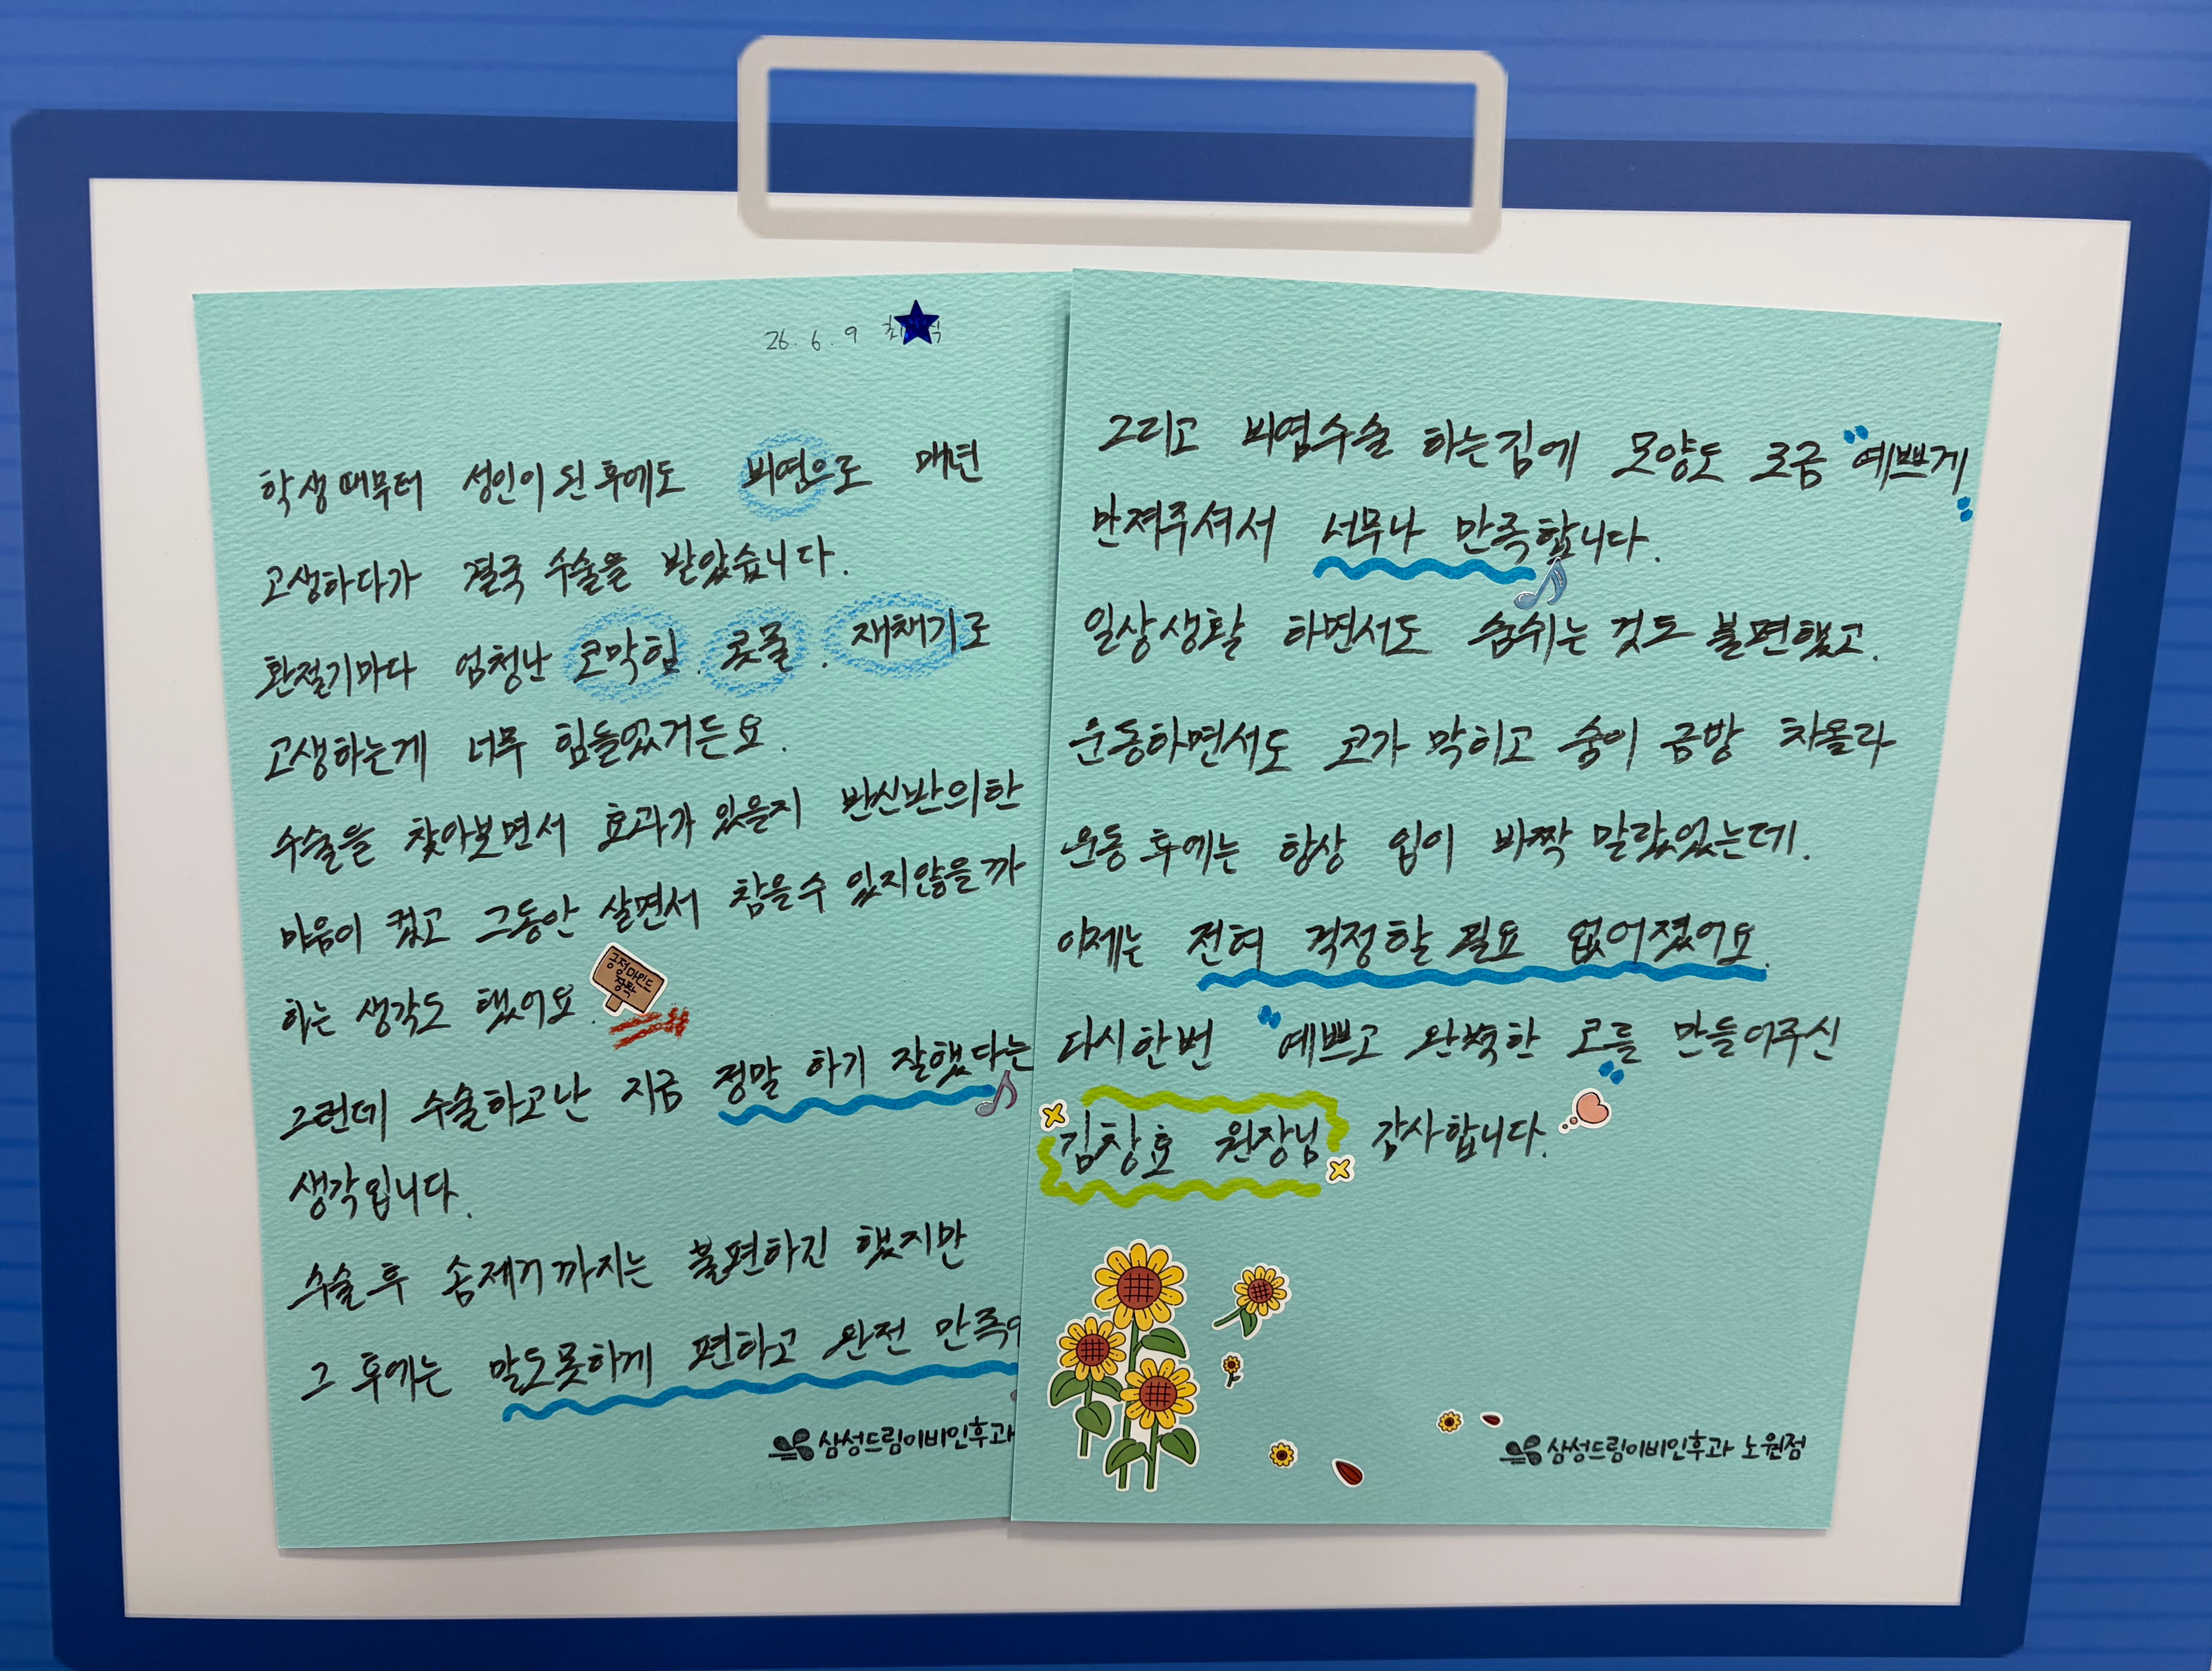 26. 6. 9
학생때부터 성인이 된 후에도 비염으로 매년
고생하다가 결국 수술을 받았습니다.
환절기마다 엄청난 코막힘. 콧물. 재채기로
고생하는게 너무 힘들었거든요.
수술을 찾아보면서 효과가 있을지 반신반의한
마음이 컸고 그동안 살면서 참을수 있지않을까
하는 생각도 했어요.
긍정마인드
장착
그런데 수술하고난 지금 정말 하기 잘했다는
생각입니다.
수술 후 솜제거까지는 불편하긴 했지만
그 후에는 말도못하게 편하고 완전 만족
삼성드림이비인후과
그리고 비염수술 하는김에 모양도 조금 "예쁘게"
만져주셔서 너무나 만족합니다.
일상생활 하면서도 숨쉬는 것도 불편했고.
운동하면서도 코가 막히고 숨이 금방 차올라
운동 후에는 항상 입이 바짝 말랐었는데.
이제는 전혀 걱정할 필요 없어졌어요.
다시한번 "예쁘고 완벽한 코"를 만들어주신
김창효 원장님 감사합니다.
삼성드림이비인후과 노원점